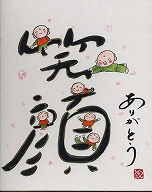 笑顔
ありがとう